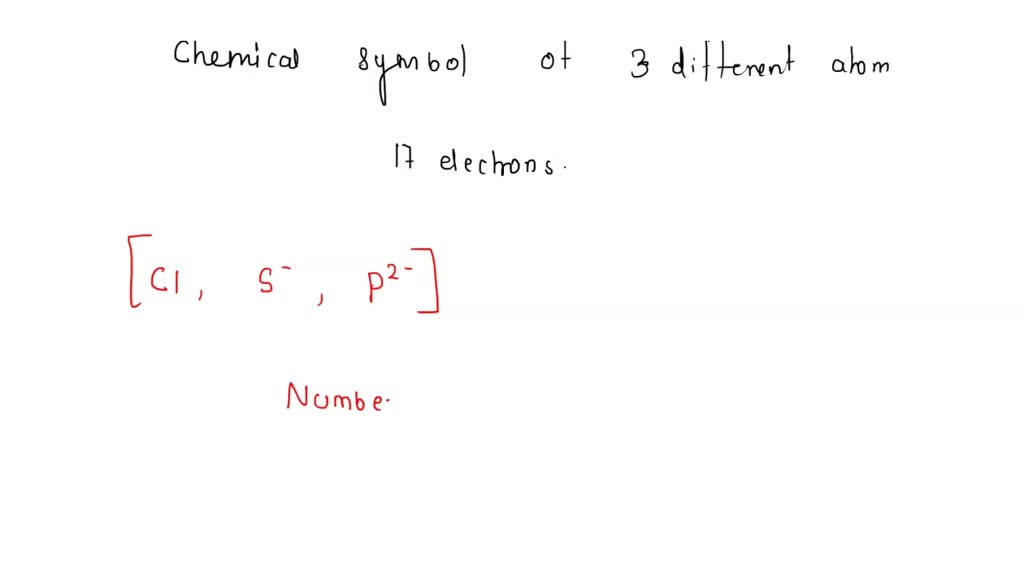 Chemical symbol of 3 different atom
17 electrons.
[Cl, S⁻, P²⁻]
Numbe